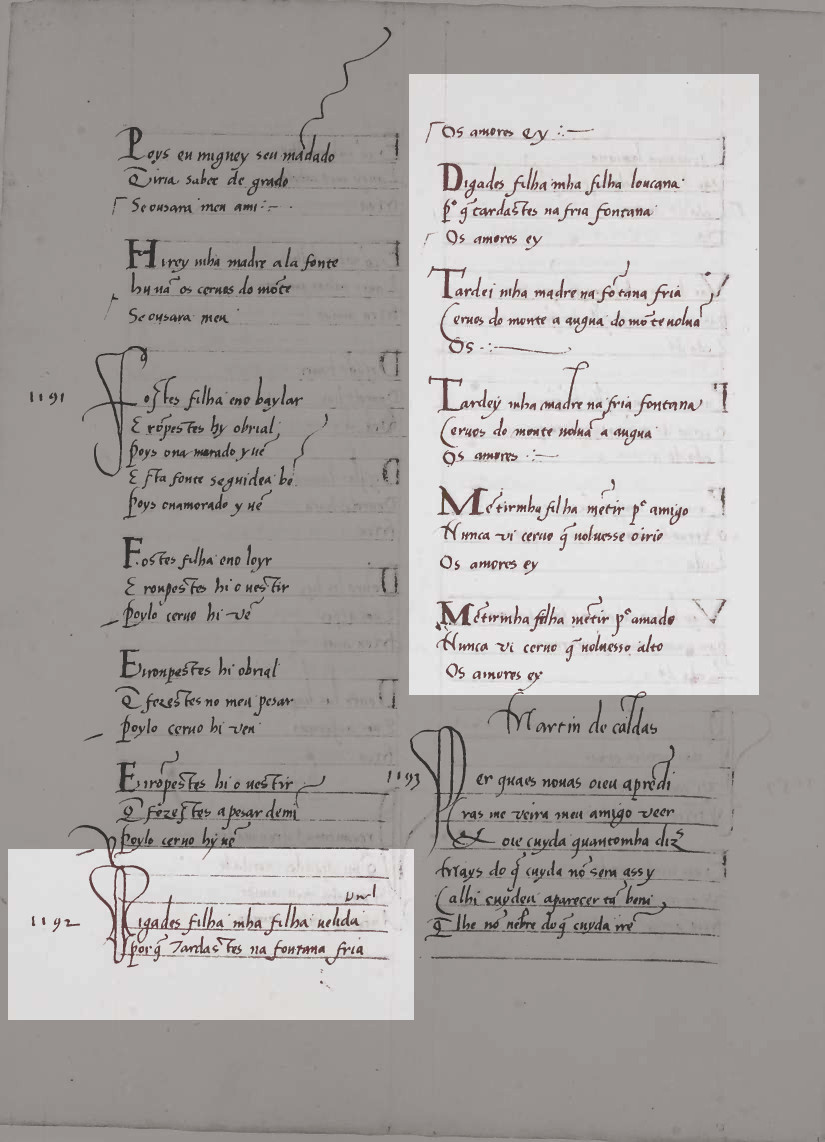 Poys eu migney seu mãdado
Q̃iria saber de grado
Se ousara meu ami
Hirey mha madre a la fonte
hu uã os ceruos do mõte
Se ousara meu
1191
Fostes filha eno baylar
E rõpestes hy obrial
poys ona morado y uẽ
E sta fonte seguidea bẽ
poys onamorado y uẽ
Fostes filha eno loyr
E ronpestes hi o uestir
poylo ceruo hi vẽ
E ronpestes hi obrial
Q̃ fezestes no meu pesar
poylo ceruo hi ven
E rrõpestes hi o uestir
Q̃ fezestes a pesar demi
poylo ceruo hy uẽ
1192
Digades filha mha filha uelida
porq̃ Tardastes na fontana fria
Os amores ey
Digades filha mha filha loucana
p̃ q̃ tardastes na fria fontana
Os amores ey
Tardei mha madre na fõtana fria
Ceruos do monte a augua do mõte uoluã
Os
Tardey mha madre na fria fontana
Ceruos do monte uoluã a augua
Os amores
Mẽtirmha filha mẽtir pº amigo
Nunca vi ceruo q̃ uoluesse o irio
Os amores ey
Mẽtirmha filha mẽtir pº amado
Nunca vi ceruo q̃ uoluesso alto
Os amores ey
Martin de caldas
1193
Per quaes nouas oieu aprẽdi
Cras me veira meu amigo veer
E oie cuyda quantomha diz̃
Mays do q̃ cuyda nõ sera assy
Ca lhi cuydeu aparecer tã beni
Q̃ lhe nõ nẽbre do q̃ cuyda rrẽ